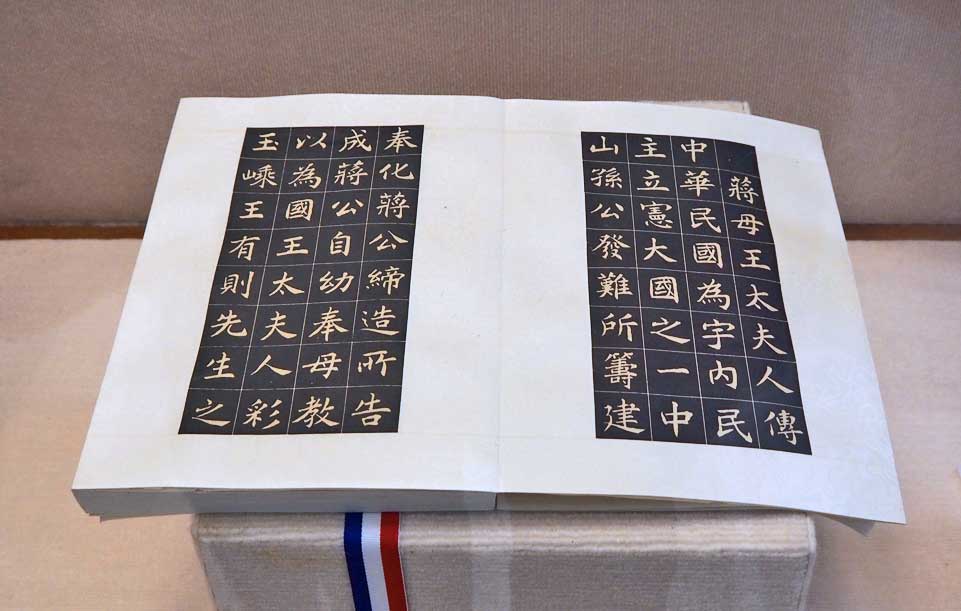 蔣母王太夫人傳
中華民國為宇內民
主立憲大國之一中
山孫公發難所籌建
奉化蔣公締造所告
成蔣公自幼奉母教
以為國王太夫人彩
玉嵊王有則先生之